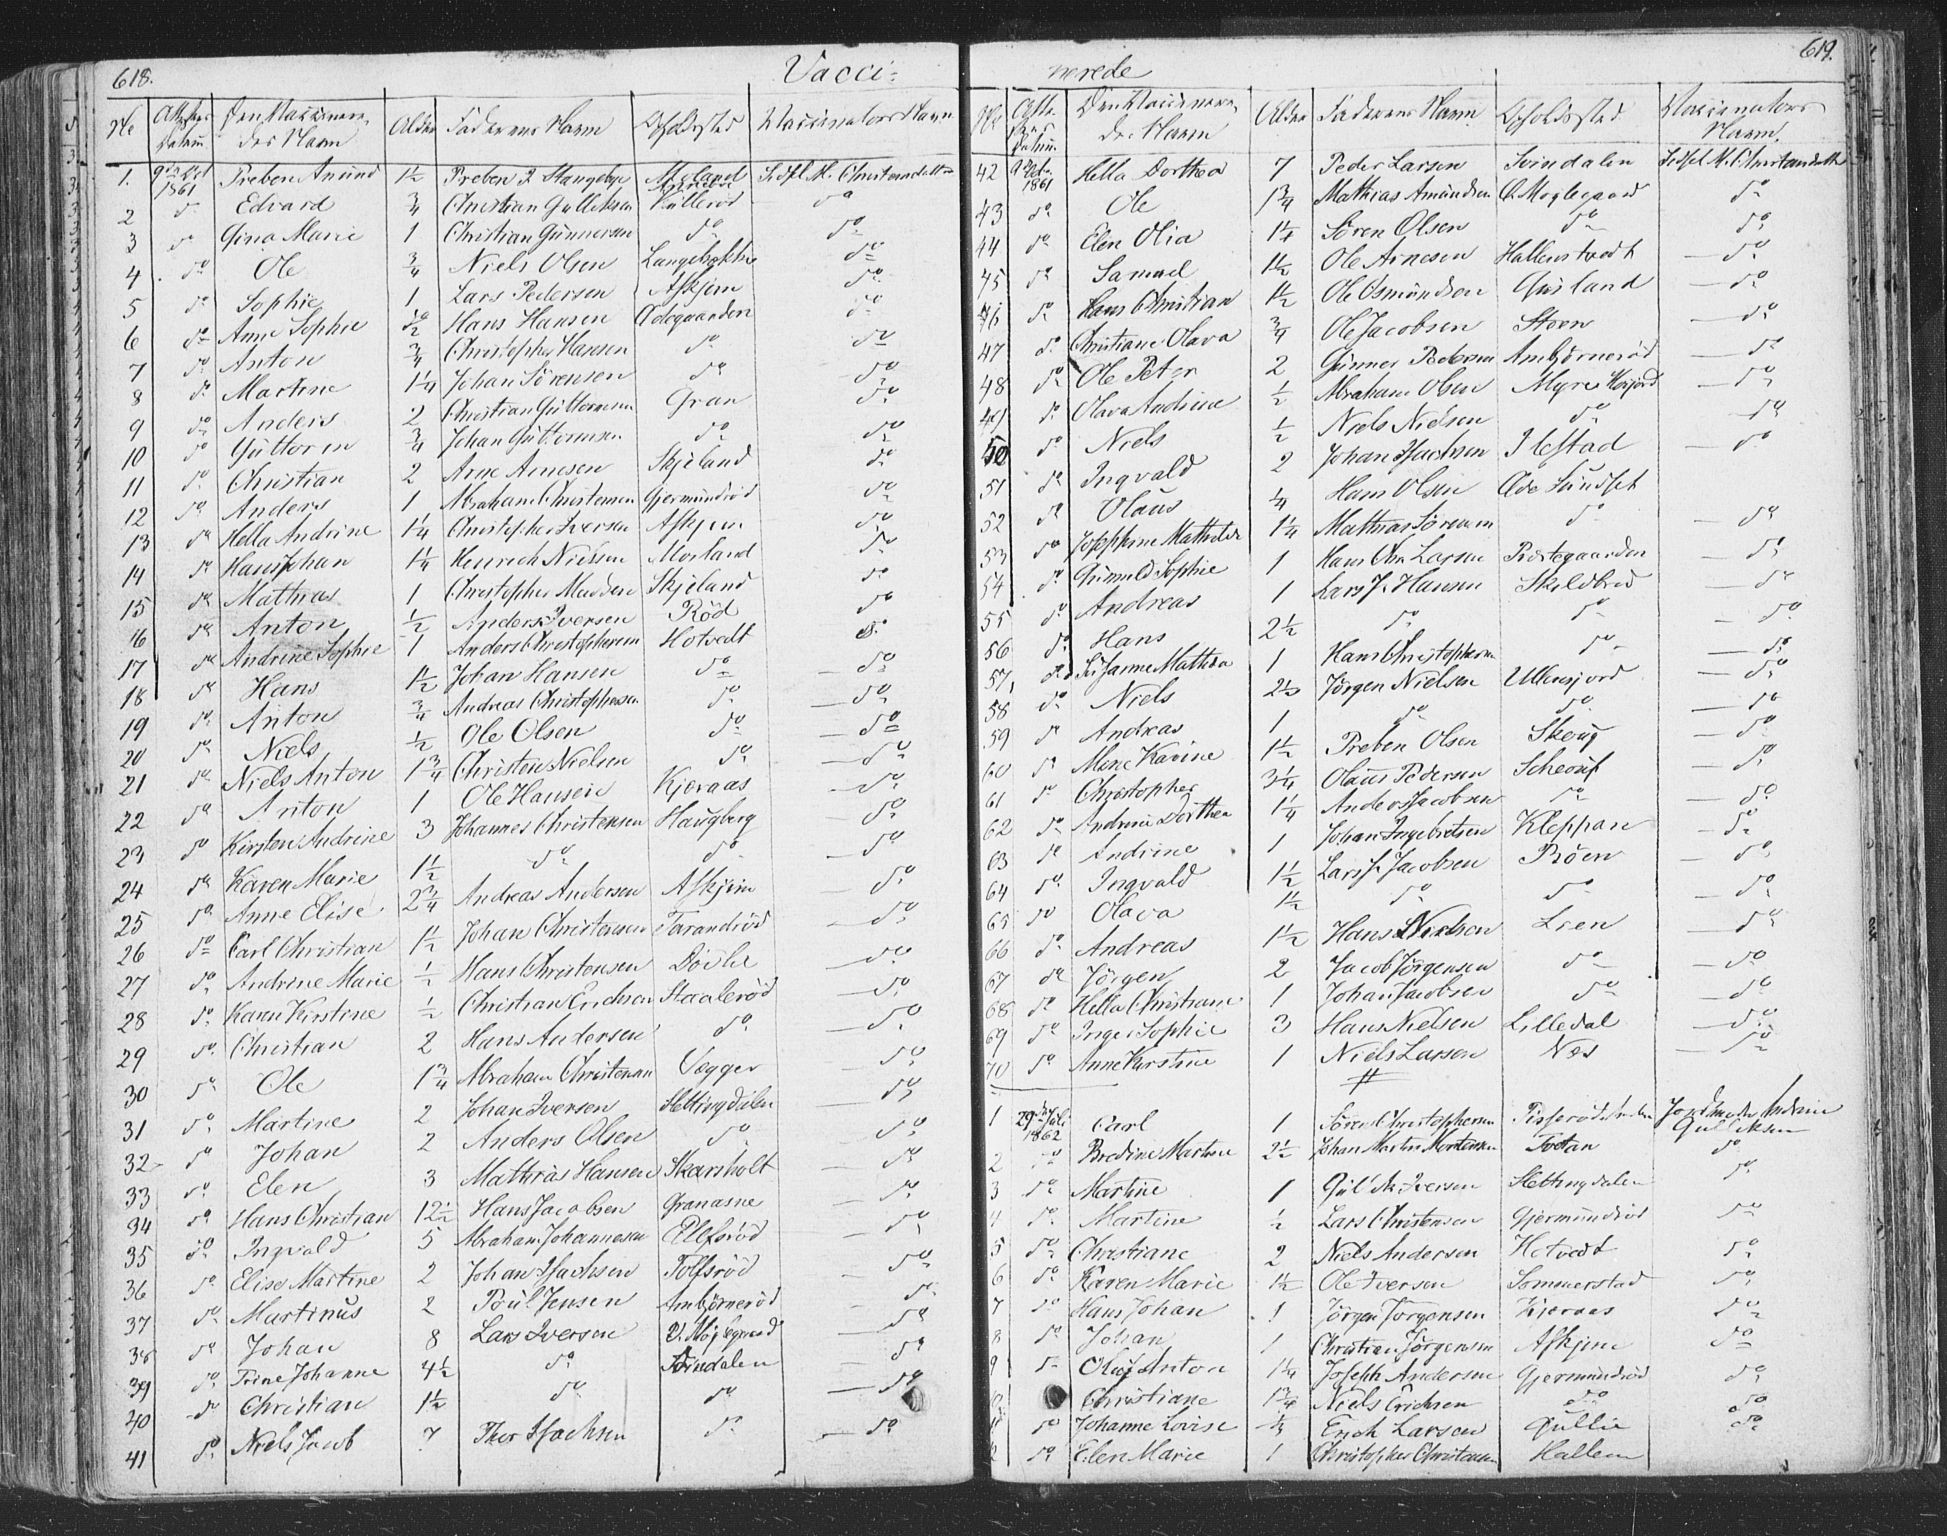 618.
Vacci-
No Attestens Datum Den Vaccineredes Navn Alder Faderens Navn Opholdssted Vaccinators Navn
1. 1861 Preben Amund 1½ Preben Stangebye
2 do Edvard ¾ Christian Gulliksen do
3 do Gina Marie 1 Christian Gunnersen do do
4 do Ole ¾ Niels Olsen do
5 do Sophie 1 Lars Pedersen Askjem do
6 do Anne Sophie Hans Hansen Ødegaarden do
7 do Anton ¾ Christopher Hansen do do
8 do Martine 1¼ Johan Sörensen do do
9 do Anders 2 Christian Guttormsen Gran do
10 do Guttorm ¾ Johan Guttormsen do do
11 do Christian 2 Arne Arnesen Skjeland do
12 do Anders 1 Abraham Christensen Gjermundröd do
13 do Hella Andrine 1¼ Christopher Iversen Askjem do
14 do Hans Johan 1¼ Henrich Nielsen Morland do
15 do Mathias 1 Christopher Madsen Skjeland do
16 do Anton ½ Anders Iversen Röd do
17 do Andrine Sophie 1 Anders Christophersen Hotvedt do
18 do Hans 1½ Johan Hansen do do
19 do Anton ¾ Andreas Christophersen do do
20 do Niels ½ Ole Olsen do do
21 do Niels Anton 1¾ Christen Nielsen do do
22 do Anton 1 Ole Hansen Kjeraas do
23 do Kirsten Andrine 3 Johannes Christensen Haugberg do
24 do Karen Marie 1½ do do do
25 do Anne Elise 2¾ Andreas Andersen Askjem do
26 do Carl Christian 1½ Johan Christensen Farandröd do
27 do Andrine Marie ½ Hans Christensen Døvle do
28 do Karen Kirstine ½ Christian Erichsen Staaleröd do
29 do Christian 2 Hans Andersen do do
30 do Ole 1¾ Abraham Christensen Vegger do
31 do Martine 2 Johan Iversen Slettingdalen do
32 do Johan 2 Anders Olsen do do
33 do Elen 3 Mathias Hansen Skarsholt do
34 do Hans Christian 12½ Hans Jacobsen Granasne do
35 do Ingvald 5 Abraham Johannesen Ellefsröd do
36 do Elise Martine 2 Johan Isachsen Tolfsröd do
37 do Martinus 2 Poul Jensen Ambjörneröd do
38 do Johan 8 Lars Iversen do
39 do Trine Johanne 4½ do Svindalen do
40 do Christian 1½ do do do
41 do Niels Jacob 7 Thor Isachsen do do
619.
nerede
No Den Vaccineredes Navn Alder Faderens Navn Opholdssted Vaccinators Navn
42 1861 Hella Dorthea 7 Peder Larsen Svindalen
43 do Ole 1¾ Mathias Amundsen do
44 do Elen Olia 1¼ Sören Olsen do do
45 do Samuel 1½ Ole Arnesen Hallenstvedt do
46 do Hans Christian 1½ Ole Osmundsen Gusland do
47 do Christiane Olava ¾ Ole Jacobsen Steen do
48 do Ole Peter 2 Gunner Pedersen Ambjörneröd do
49 do Olava Andrine ½ Abraham Olsen do
50 do Niels ½ Niels Nielsen do do
51 do Ingvald 2 Johan Isachsen Ilestad do
52 do Olaus ¼ Hans Olsen
53 do Josephine Mathilde 1¼ Mathias Sörensen do do
54 do Gunnild Sophie 1 Hans Chr. Larsen Præstegaarden do
55 do Andreas 1 Lars J. Hansen Skjeldbred do
56 do Hans 2½ do do do
57 do Susanne Mathea 1 Hans Christophersen do do
58 do Niels 2½ Jörgen Nielsen Ullensjord do
59 do Andreas 1 do do do
60 do Mene Karine 1½ Preben Olsen Skoug do
61 do Christopher 3¼ Olaus Pedersen do
62 do Andrine Dorthea 1¼ Anders Jacobsen do do
63 do Andrine 1 Johan Ingebretsen Kleppan do
64 do Ingvald 1½ Lars J. Jacobsen Röen do
65 do Olava 1½ do do do
66 do Andreas 1½ Hans Nielsen Lien do
67 do Jörgen 2 Jacob Jörgensen do do
68 do Hella Christiane 1 Johan Jacobsen do do
69 do Inger Sophie 3 Hans Nielsen Lilledal do
70 do Anne Kirstine 1 Niels Larsen Næs do
1 29de Juli 1862 Carl 1 Sören Christophersen Jordmoder Andrine Gulliksen
2 do Bredine Martine 2½ Johan Martin Mortensen Fossan do
3 do Martine 1 Gul. M. Iversen Slettingdalen do
4 do Martine ½ Lars Christensen Gjermundröd do
5 do Christiane 2 Niels Andersen Hotvedt do
6 do Karen Marie 1½ Ole Iversen Sommerstad do
7 do Hans Johan 1 Jörgen Jörgensen Kjeraas do
8 do Johan 1 Christian Jörgensen Askjem do
9 do Oluf Anton 1¼ Joseph Andersen Gjermundröd do
Christiane 1¾ Niels Erichsen do do
do Johanne Lovise Erich Larsen Gullie do
do Elen Marie 1 Christopher Christensen Hallem